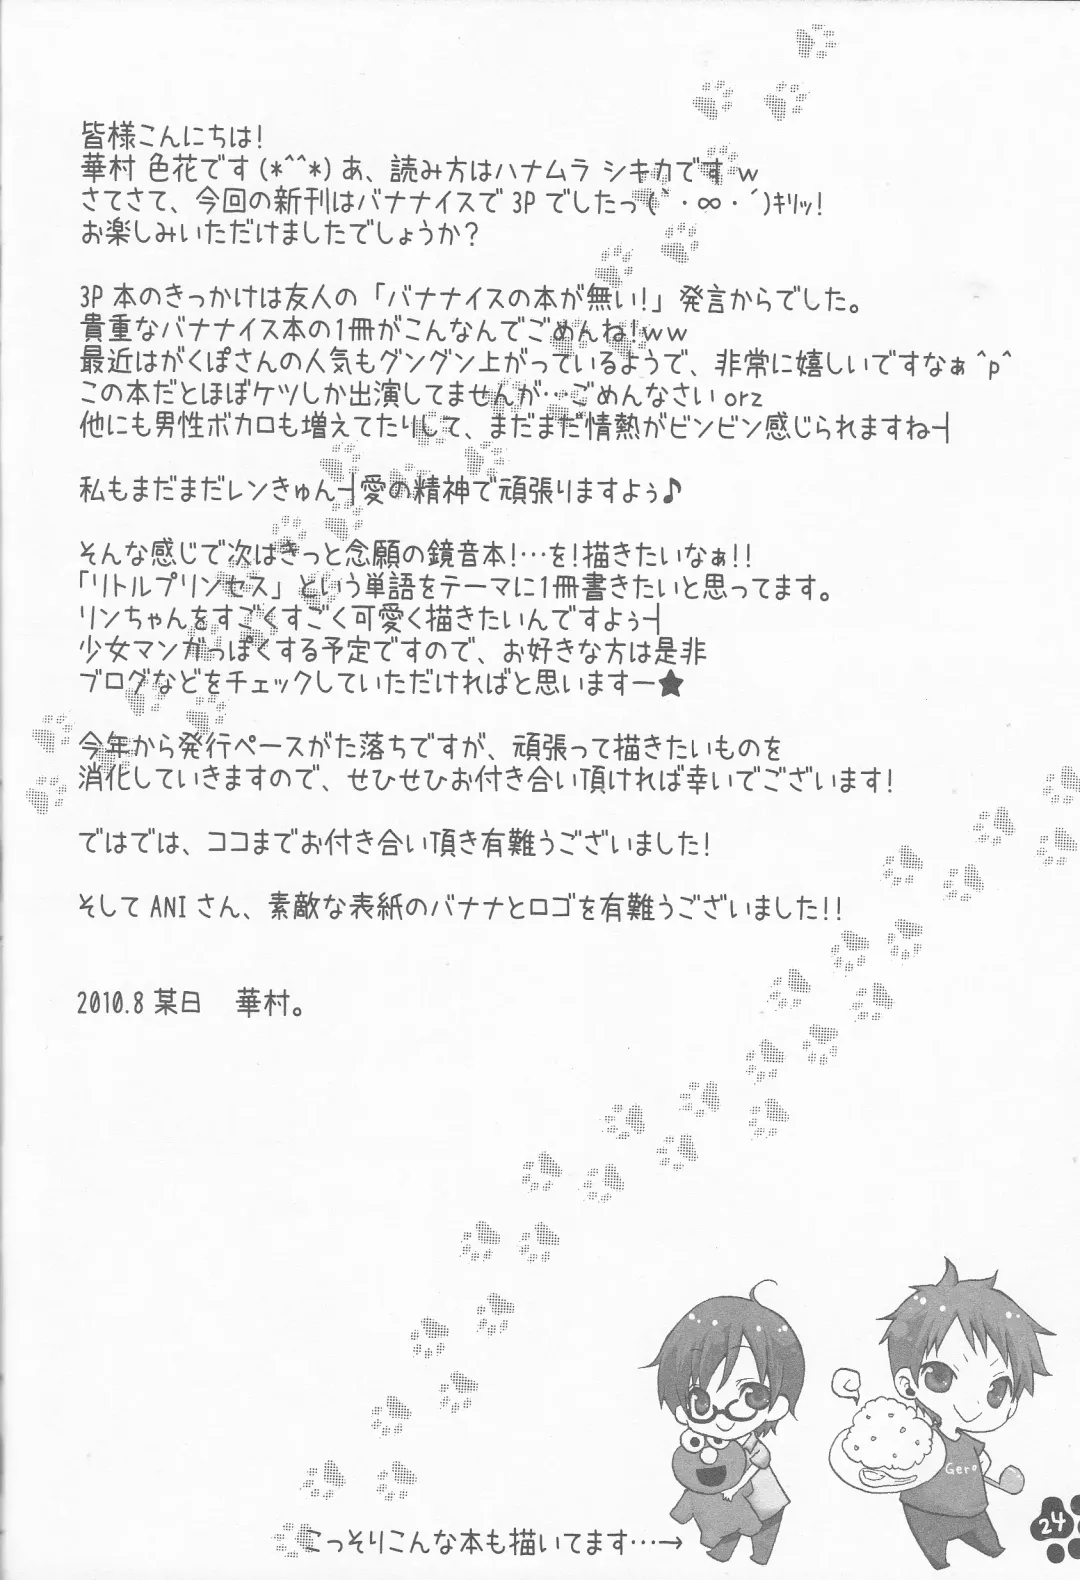 皆様こんにちは!
華村 色花です(*^^*)あ、読み方はハナムラ シキカです w
さてさて、今回の新刊はバナナイスで 3P でしたっ(｀・∞・´)ｷﾘｯ!
お楽しみいただけましたでしょうか?
3P 本のきっかけは友人の「バナナイスの本が無い!」発言からでした。
貴重なバナナイス本の1冊がこんなんでごめんね!ww
最近はがくぽさんの人気もグングン上がっているようで、非常に嬉しいですなぁ^p^
この本だとほぼケツしか出演してませんが…ごめんなさい orz
他にも男性ボカロも増えてたりして、まだまだ情熱がビンビン感じられますね┤
私もまだまだレンきゅん┤愛の精神で頑張りますよぅ♪
そんな感じで次はきっと念願の鏡音本!…を!描きたいなぁ!!
「リトルプリンセス」という単語をテーマに1冊書きたいと思ってます。
リンちゃんをすごくすごく可愛く描きたいんですよぅ┤
少女マンガっぽくする予定ですので、お好きな方は是非
ブログなどをチェックしていただければと思いますー★
今年から発行ペースがた落ちですが、頑張って描きたいものを
消化していきますので、ぜひぜひお付き合い頂ければ幸いでございます!
ではでは、ココまでお付き合い頂き有難うございました!
そして ANI さん、素敵な表紙のバナナとロゴを有難うございました!!
2010.8 某日 華村。
Gero
こっそりこんな本も描いてます…→
24